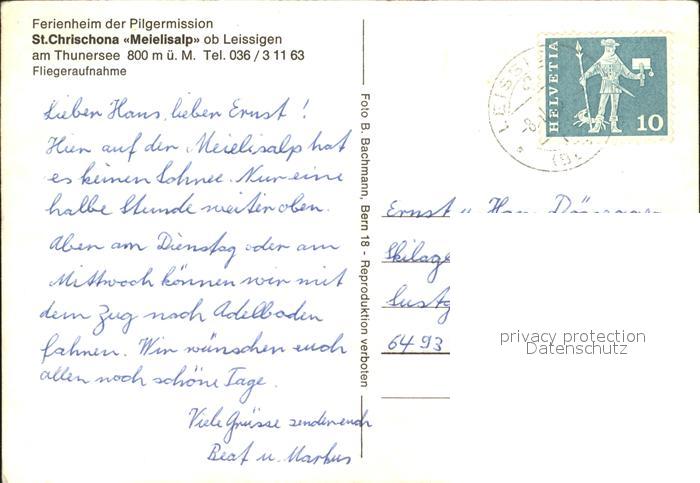 Ferienheim der Pilgermission
St.Chrischona «Meielisalp» ob Leissigen
am Thunersee 800 m ü. M. Tel. 036 / 3 11 63
Fliegeraufnahme
Lieben Hans, lieber Ernst!
Hier auf der Meielisalp hat
es keinen Schnee. Nur eine
halbe Stunde weiter oben.
Aber am Dienstag oder am
Mittwoch können wir mit
dem Zug nach Adelboden
fahren. Wir wünschen euch
allen noch schöne Tage.
Viele Grüsse senden euch
Beat u. Markus
Foto B. Bachmann, Bern 18 - Reproduktion verboten
HELVETIA
10
LEISSI
Ernst u. Hans
Skilage
Lustg
6493
privacy protection
Datenschutz